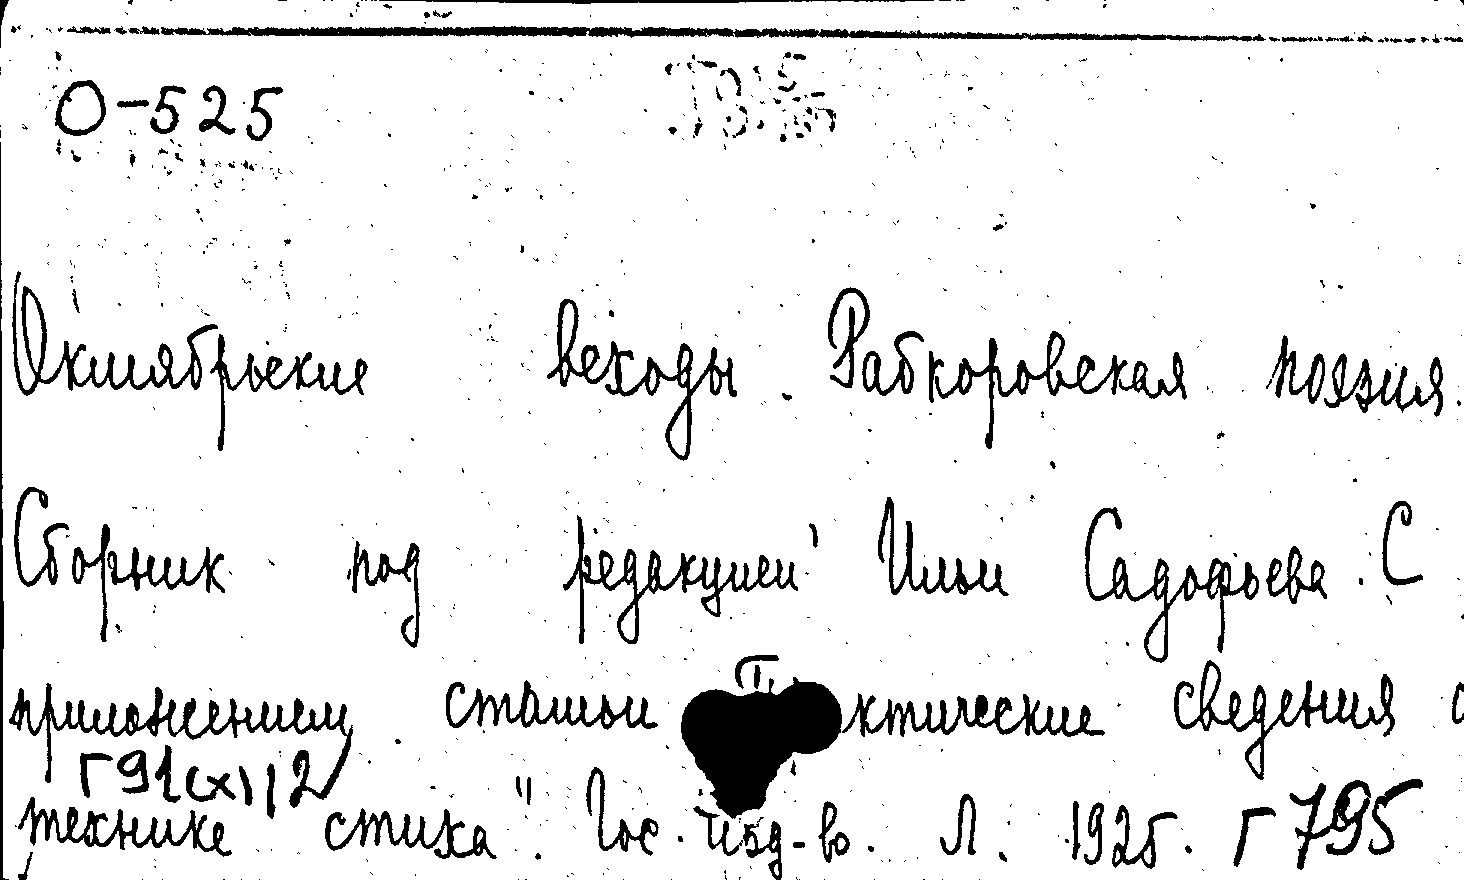 О-525
Октябрьские всходы. Рабкоровская поэзия.
Сборник под редакцией Ильи Садофьева. С
приложением статьи ктические сведения о
Г91(х)12
технике стиха". Гос. изд-во. Л. 1925. Г 795